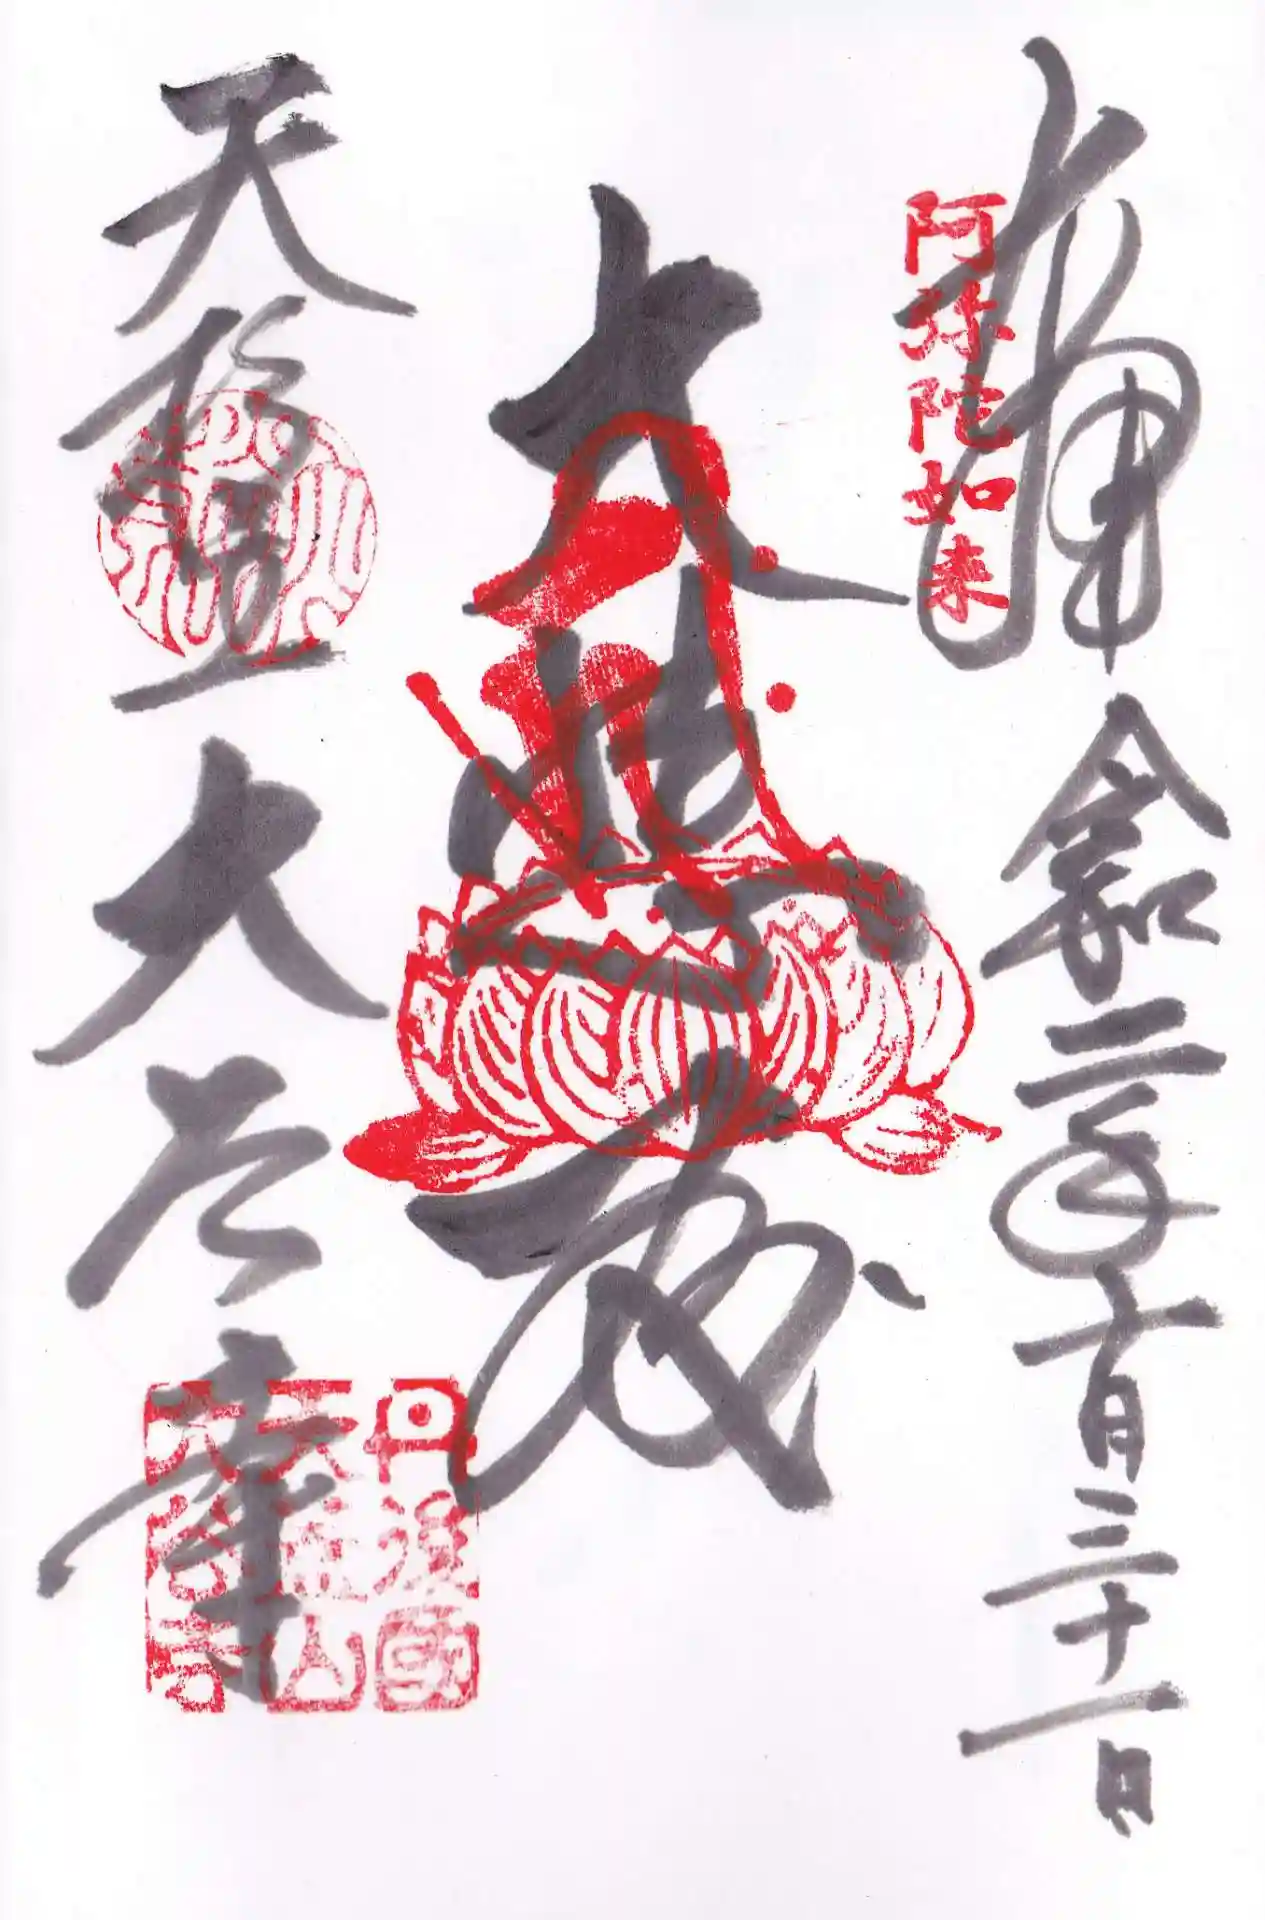 奉拝 令和二年十月三十一日
阿弥陀如来
大悲
天橋立 大谷寺
丹後國
天蓋山
大谷寺